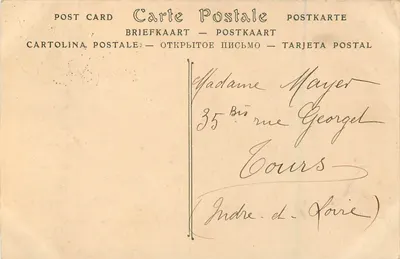 POST CARD Carte Postale POSTKARTE
BRIEFKAART — POSTKAART
CARTOLINA POSTALE — ОТКРЫТОЕ ПИСЬМО — TARJETA POSTAL
Madame Mayer
35 Bis rue Georget
Tours
(Indre-d-Loire)